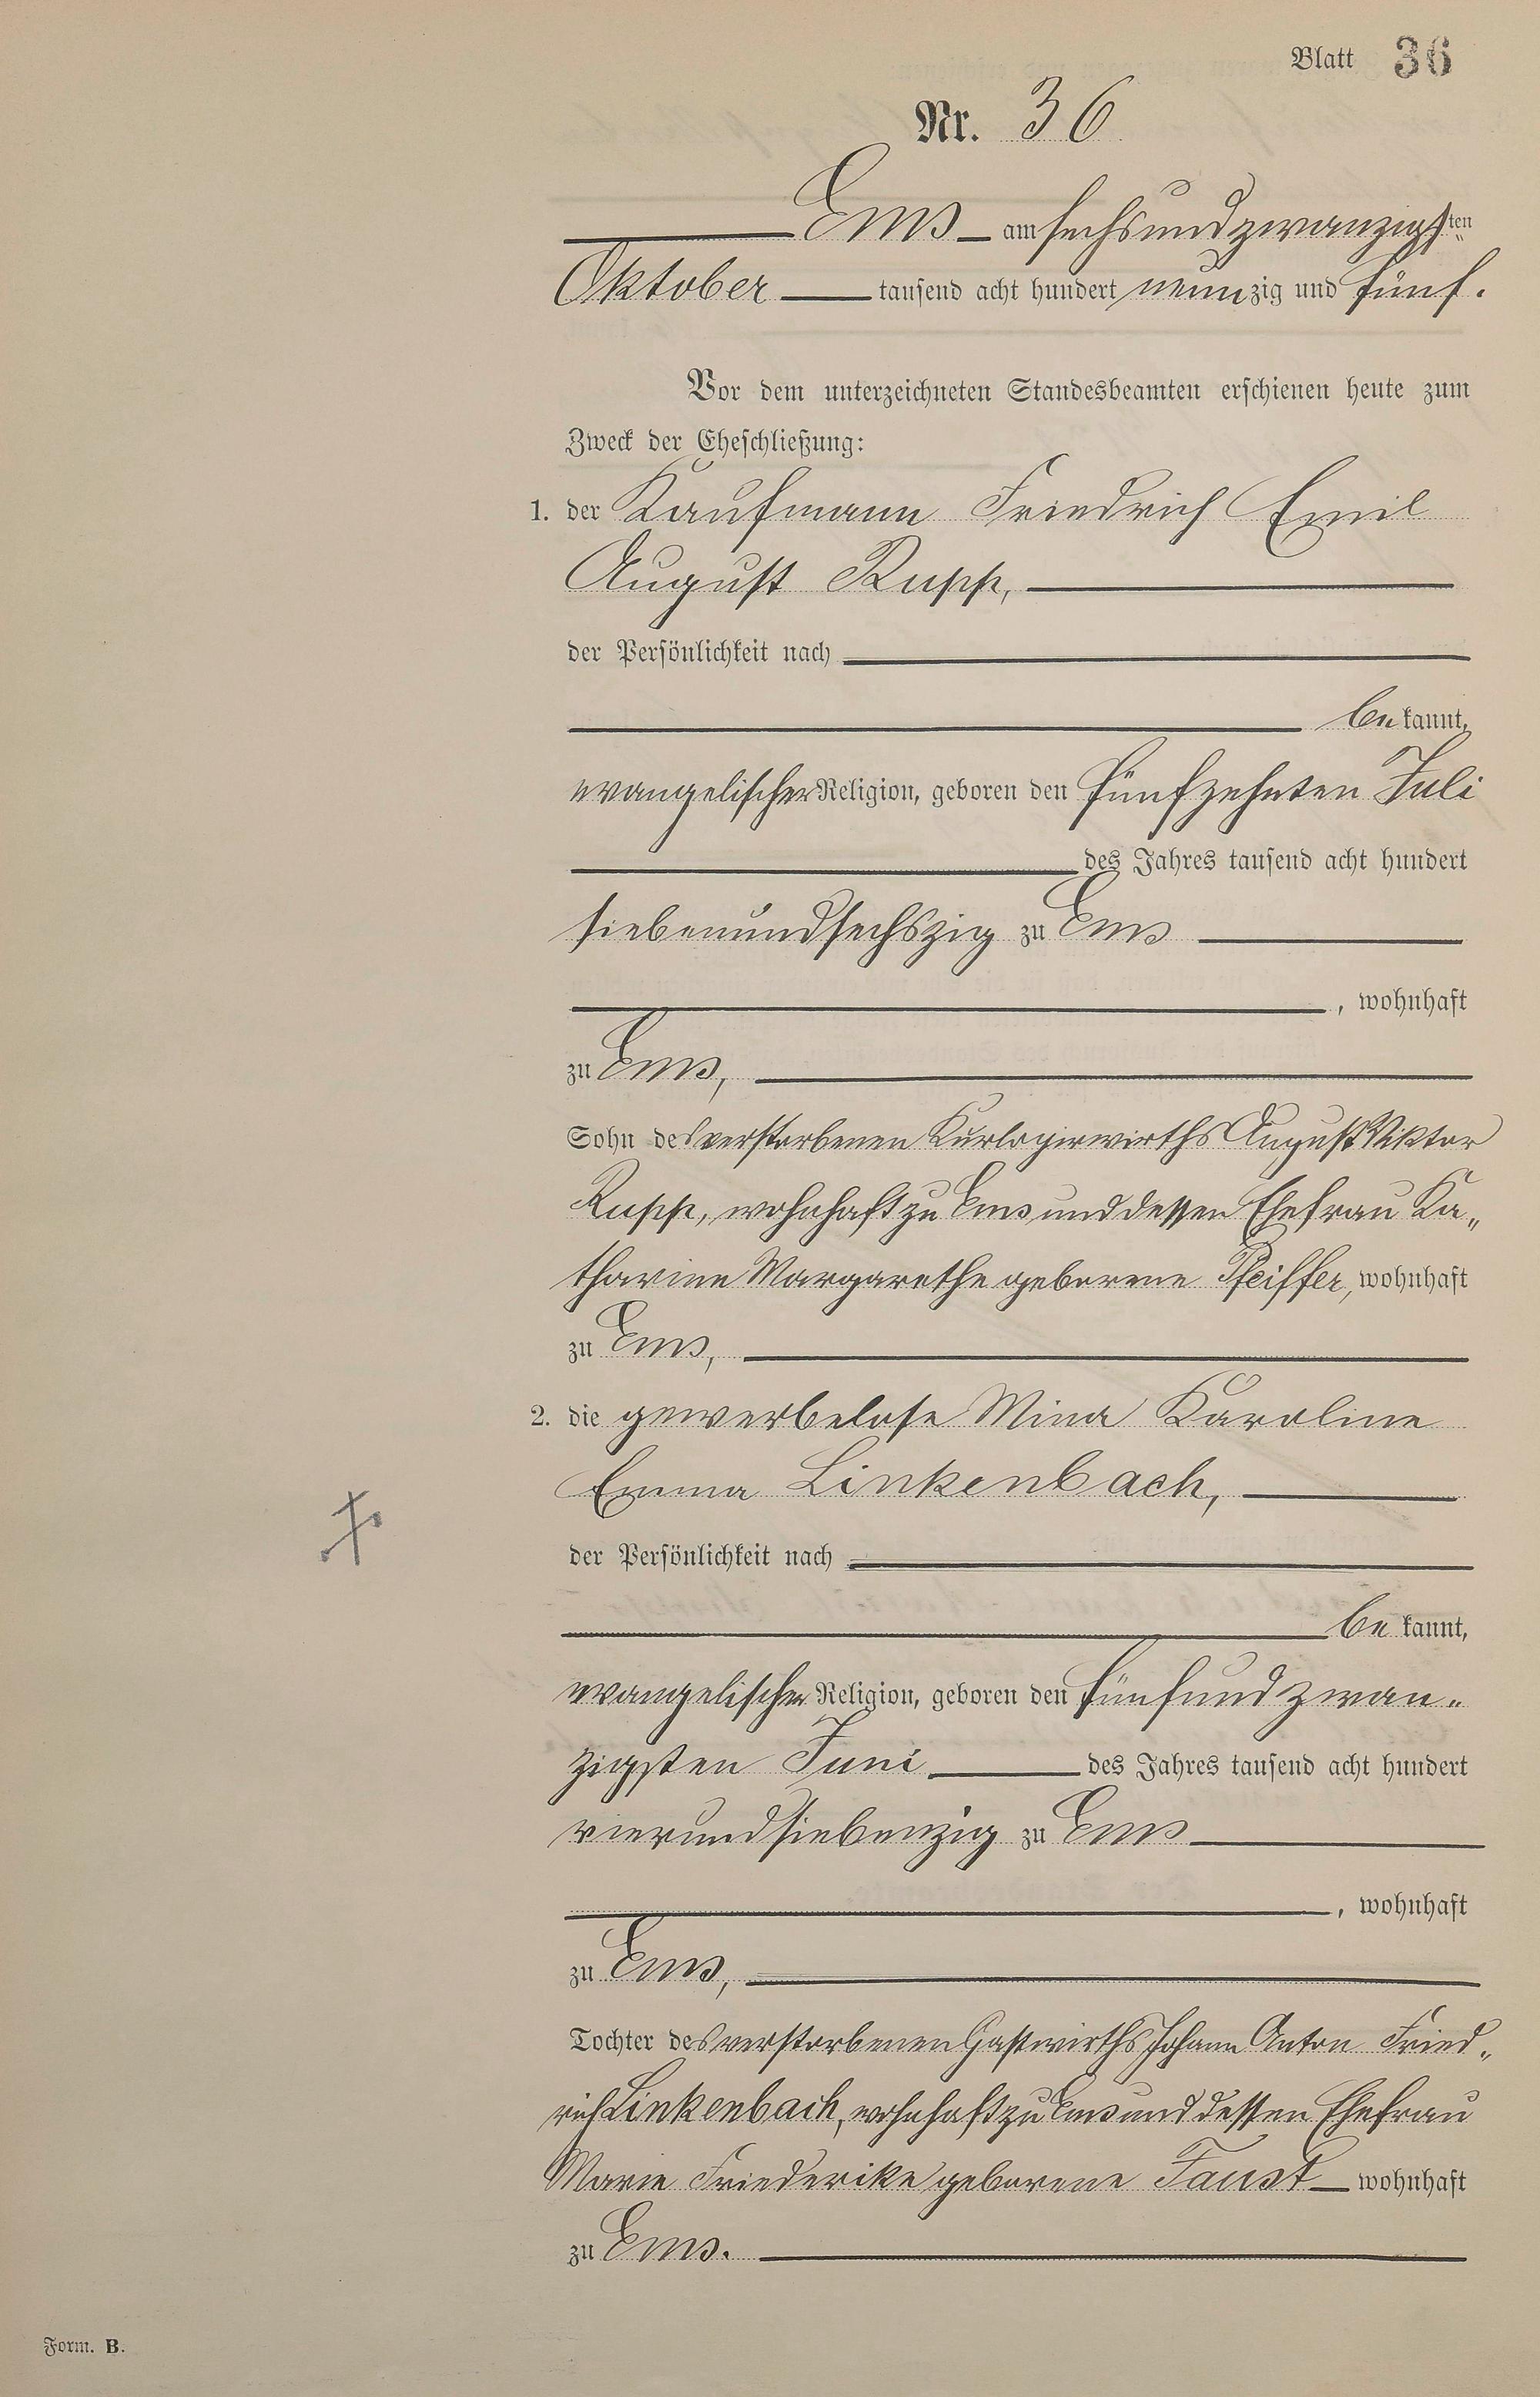 Blatt 36
Nr. 36
Ems am sechsundzwanzigsten
Oktober tausend acht hundert neunzig und fünf.
Vor dem unterzeichneten Standesbeamten erschienen heute zum
Zweck der Eheschließung:
1. der Kaufmann Friedrich Emil
August Rupp,
der Persönlichkeit nach
bekannt,
evangelischer Religion, geboren den fünfzehnten Juli
des Jahres tausend acht hundert
siebenundsechszig zu Ems
, wohnhaft
zu Ems,
Sohn des verstorbenen Kurlogirwirths August Viktor
Rupp, wohnhaft zu Ems und dessen Ehefrau Ka„
tharine Margarethe geborene Pfeiffer, wohnhaft
zu Ems,
2. die gewerbelose Mina Karoline
Emma Linkenbach,
der Persönlichkeit nach
bekannt,
evangelischer Religion, geboren den fünfundzwan„
zigsten Juni des Jahres tausend acht hundert
vierundsiebenzig zu Ems
, wohnhaft
zu Ems,
Tochter des verstorbenen Gastwirths Johann Anton Fried„
rich Linkenbach, wohnhaft zu Ems und dessen Ehefrau
Marie Friederike geborene Faust wohnhaft
zu Ems.
Form. B.